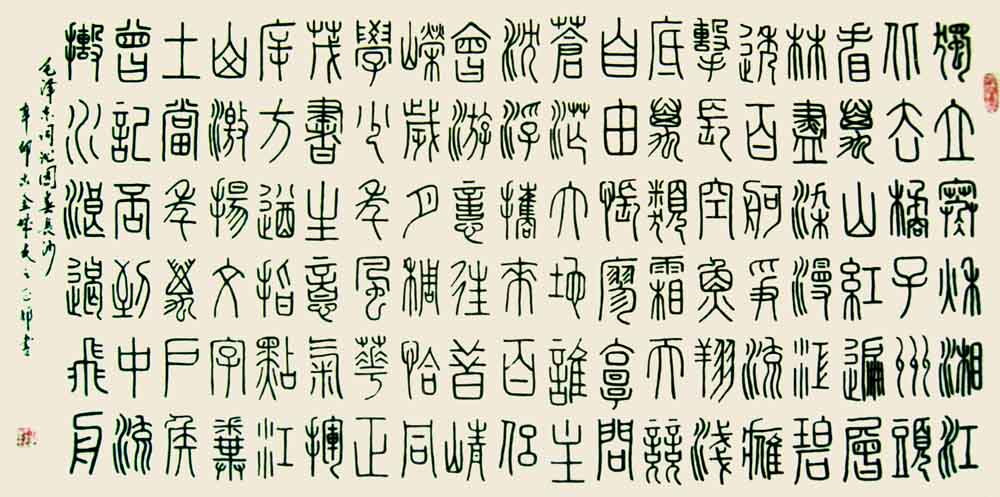 獨立寒秋湘江
北去橘子州頭
看萬山紅遍層
林盡染漫江碧
透百舸爭流鷹
擊長空魚翔淺
底萬類霜天競
自由悵廖廓問
蒼茫大地誰主
沈浮攜來百侶
曾游憶往昔崢
嶸歲月稠恰同
學少年風華正
茂書生意氣揮
斥方遒指點江
山激揚文字糞
土當年萬戶侯
曾記否到中流
擊水浪遏飛舟
毛澤東詞沁園春長沙
辛卯 書